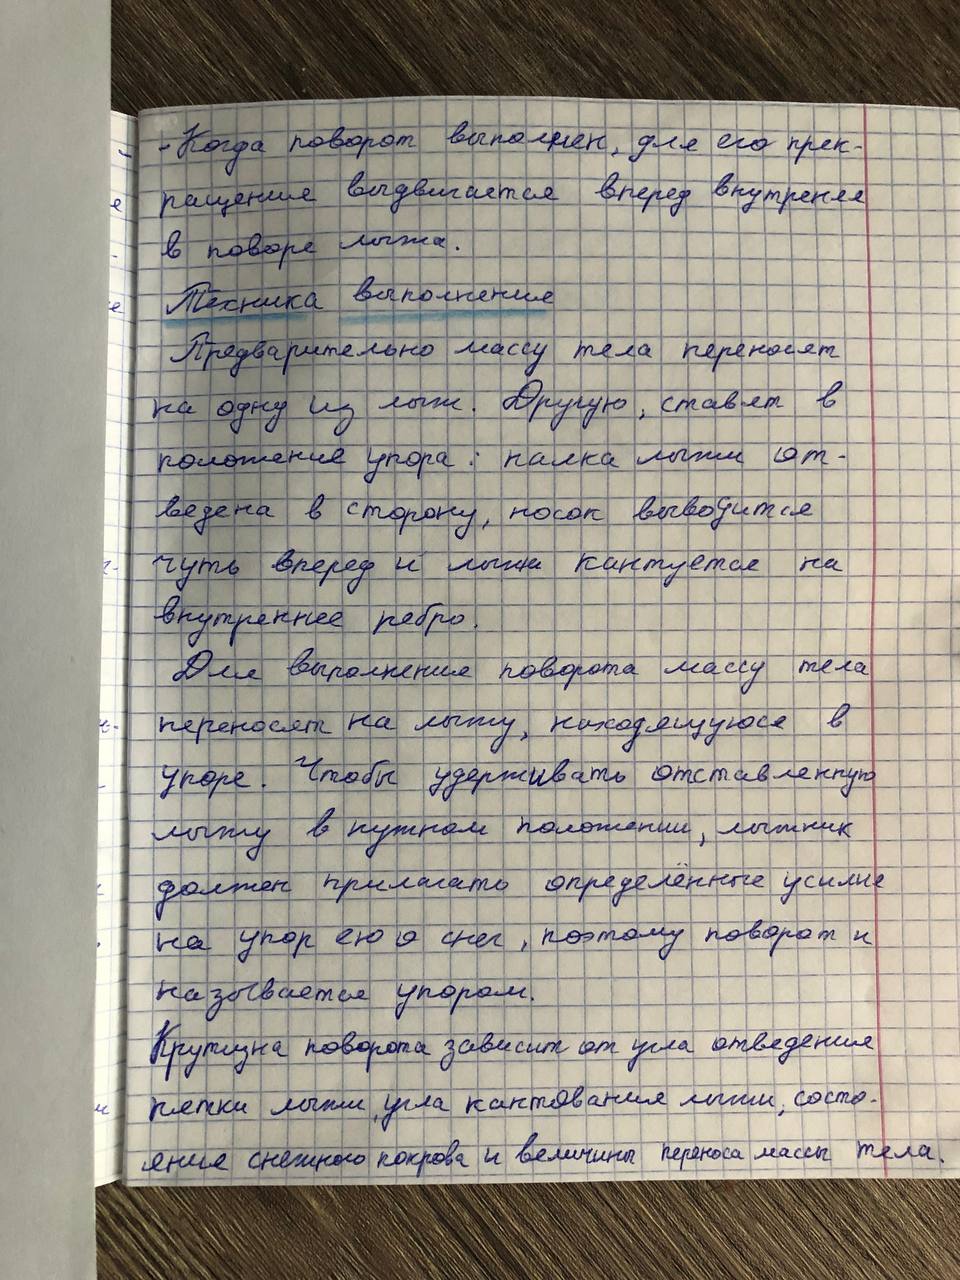 - Когда поворот выполнен, для его прек-
ращения выдвигается вперед внутреняя
в поворе лыжа.
Техника выполнения
Предварительно массу тела переносят
на одну из лыж. Другую, ставят в
положение упора: палка лыжи от-
ведена в сторону, носок выводится
чуть вперед и лыжа кантуется на
внутреннее ребро.
Для выполнения поворота массу тела
переносят на лыжу, находящуюся в
упоре. Чтобы удерживать отставленную
лыжу в нужном положении, лыжник
должен прилагать определённые усилие
на упор ею о снег, поэтому поворот и
называется упором.
Крутизна поворота зависит от угла отведения
пятки лыжи, угла кантования лыжи, состо-
яние снежного покрова и величины переноса массы тела.